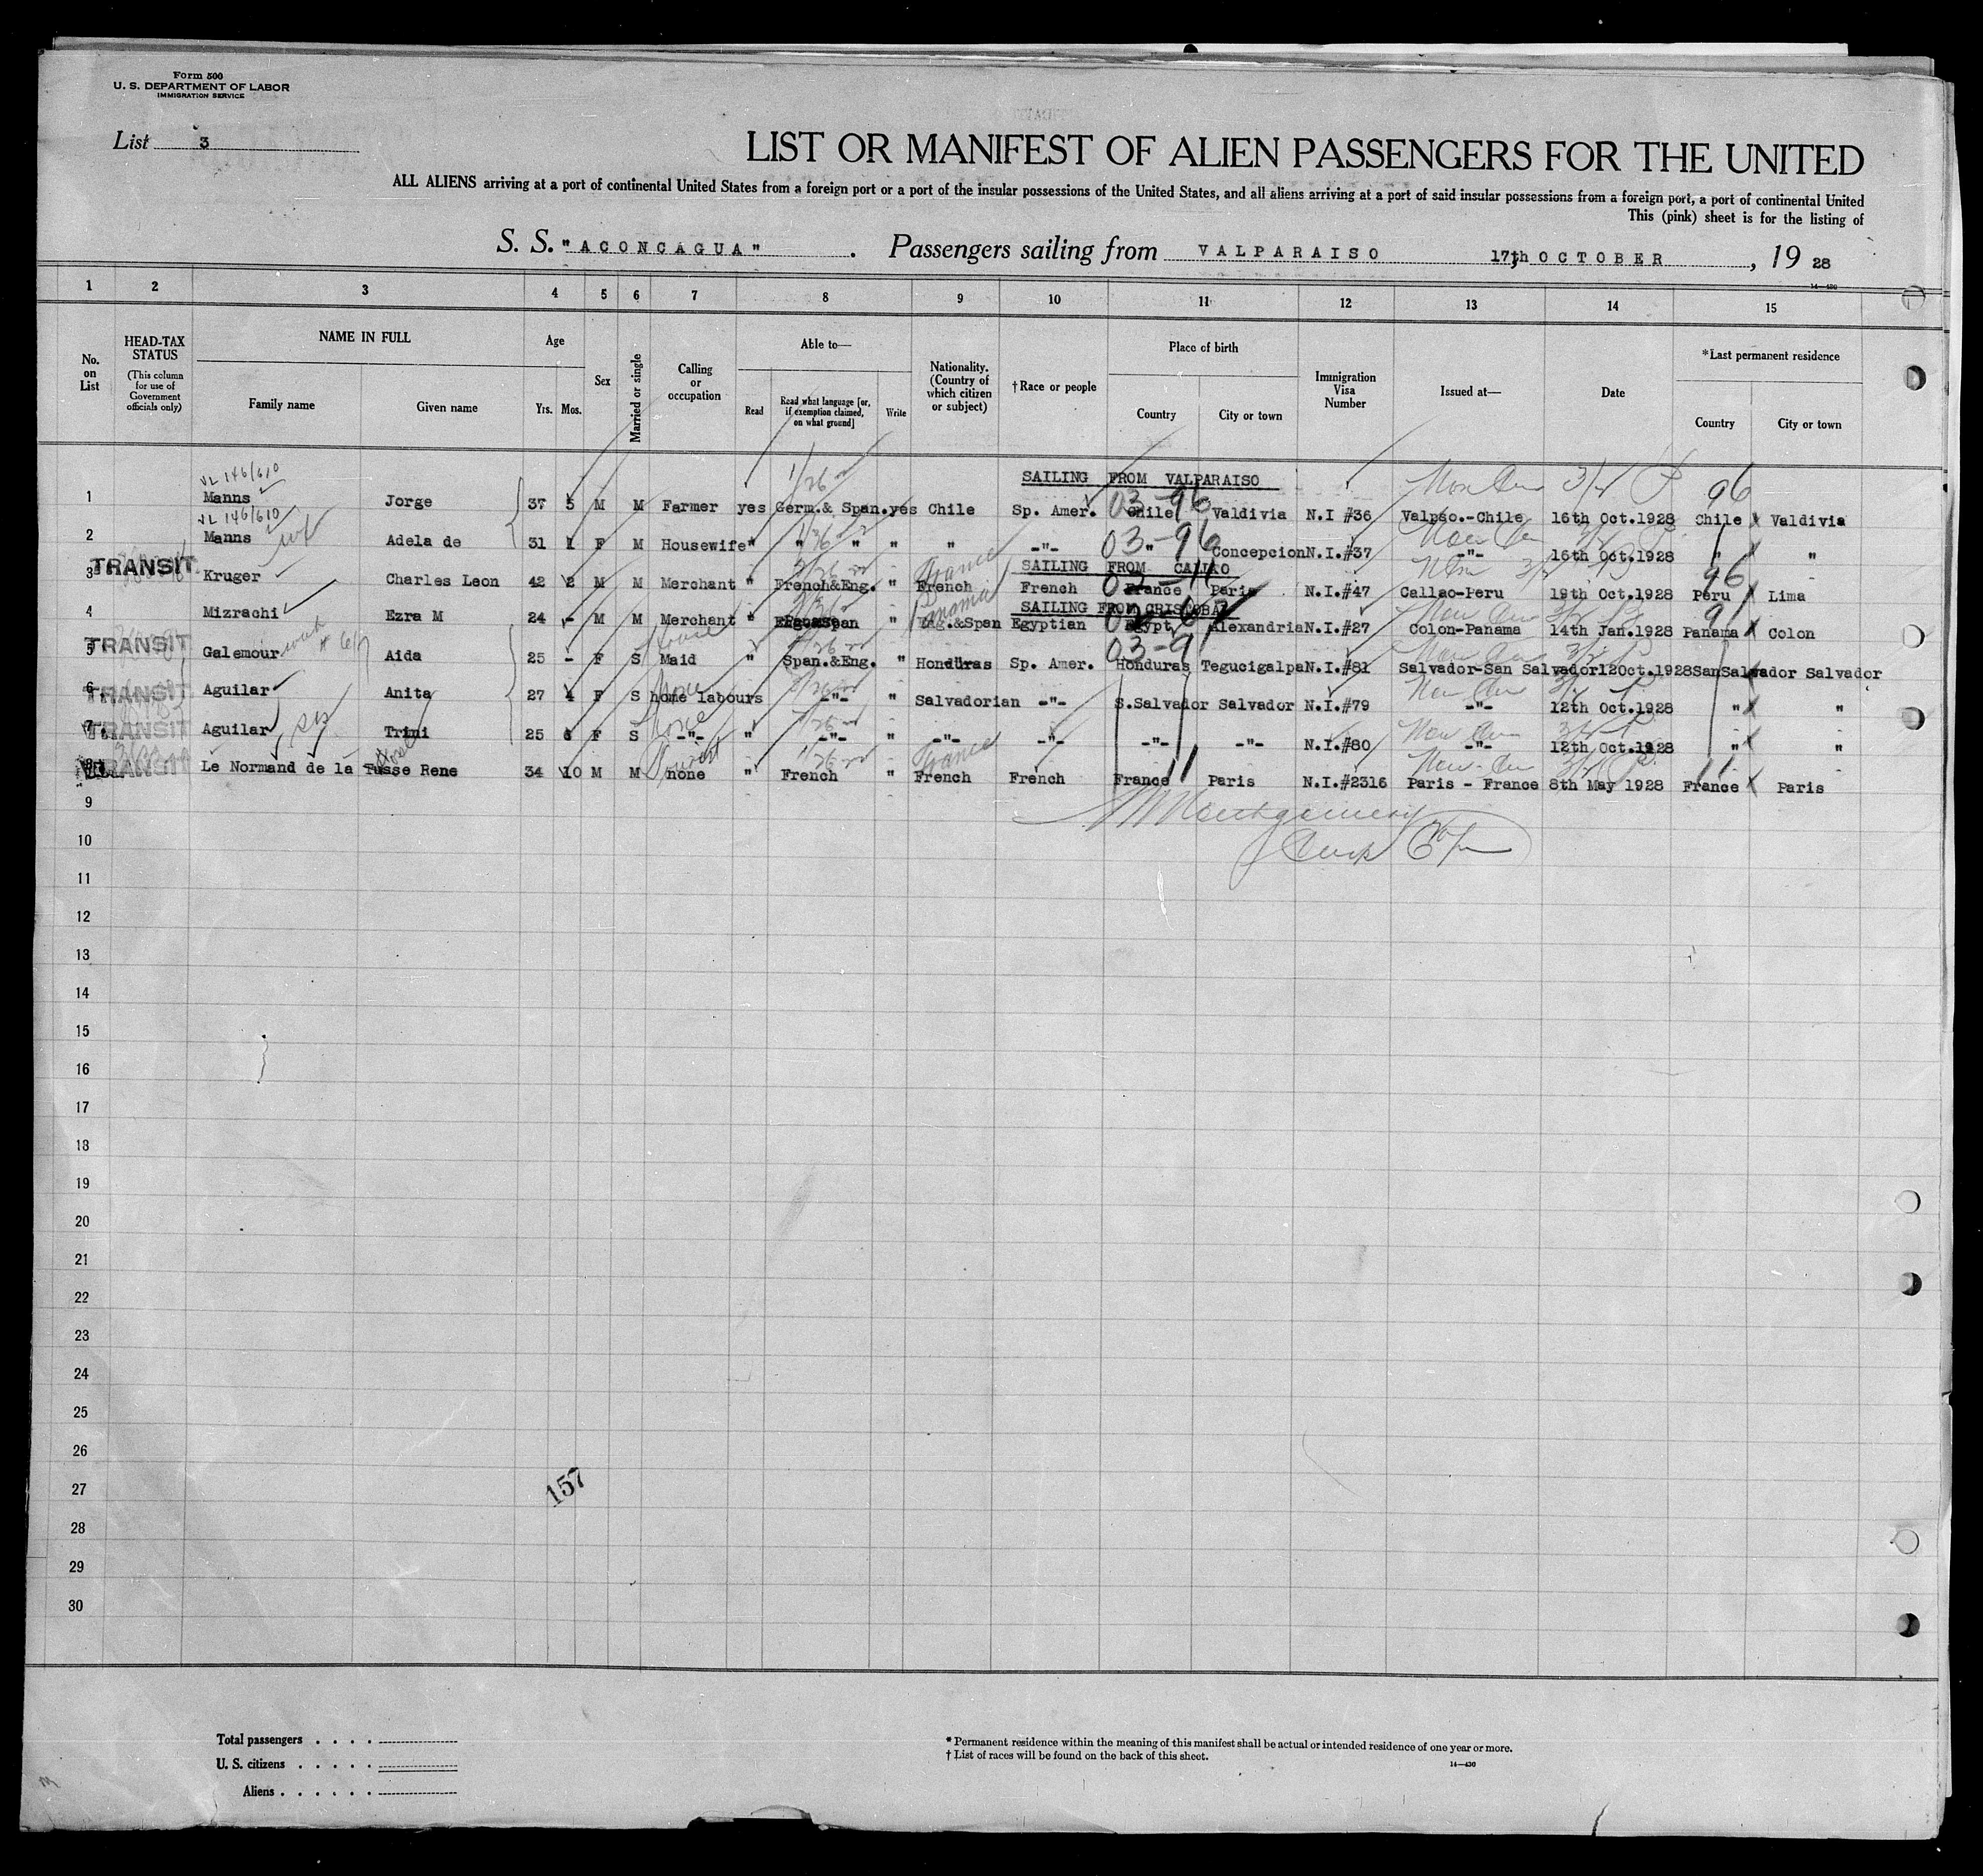 Form 500
U. S. DEPARTMENT OF LABOR
IMMIGRATION SERVICE
List 3
LIST OR MANIFEST OF ALIEN PASSENGERS FOR THE UNITED
ALL ALIENS arriving at a port of continental United States from a foreign port or a port of the insular possessions of the United States, and all aliens arriving at a port of said insular possessions from a foreign port, a port of continental United
This (pink) sheet is for the listing of
S. S. "ACONCAGUA" . Passengers sailing from VALPARAISO 17th OCTOBER , 19 28
14—430
1 2 3 4 5 6 7 8 9 10 11 12 13 14 15
No. on List
HEAD-TAX STATUS
(This column for use of Government officials only)
NAME IN FULL
Family name
Given name
Age
Yrs. Mos.
Sex
Married or single
Calling or occupation
Able to—
Read
Read what language [or, if exemption claimed, on what ground]
Write
Nationality. (Country of which citizen or subject)
†Race or people
Place of birth
Country
City or town
Immigration Visa Number
Issued at—
Date
*Last permanent residence
Country
City or town
VL 146/610
SAILING FROM VALPARAISO
03-96 96
1 Manns Jorge 37 5 M M Farmer yes Germ.& Span. yes Chile Sp. Amer. Chile Valdivia N.I #36 Valpso.-Chile 16th Oct.1928 Chile Valdivia
VL 146/610
03-96
2 Manns Adela de 31 1 F M Housewife " " " " " -"- " Concepcion N.I.#37 -"- 16th Oct.1928 " "
SAILING FROM CALLAO
TRANSIT
France 96
3 Kruger Charles Leon 42 2 M M Merchant " French&Eng. " French French France Paris N.I.#47 Callao-Peru 19th Oct.1928 Peru Lima
SAILING FROM CRISTOBAL
Panama
4 Mizrachi Ezra M 24 - M M Merchant " " Eng.&Span Egyptian Egypt Alexandria N.I.#27 Colon-Panama 14th Jan.1928 Panama Colon
TRANSIT
03-91
5 Galemour Aida 25 - F S Maid " Span.&Eng. " Honduras Sp. Amer. Honduras Tegucigalpa N.I.#81 Salvador-San Salvador 12Oct.1928 SanSalvador Salvador
TRANSIT
6 Aguilar Anita 27 4 F S home labours -"- " Salvadorian -"- S.Salvador Salvador N.I.#79 -"- 12th Oct.1928 " "
TRANSIT
7 Aguilar Trini 25 6 F S -"- " -"- " -"- -"- -"- -"- N.I.#80 -"- 12th Oct.1928 " "
TRANSIT
Tourist France
8 Le Normand de la Tusse Rene 34 10 M M none " French " French French France Paris N.I.#2316 Paris - France 8th May 1928 France Paris
9
10
11
12
13
14
15
16
17
18
19
20
21
22
23
24
25
26
27
157
28
29
30
Total passengers
U. S. citizens
Aliens
* Permanent residence within the meaning of this manifest shall be actual or intended residence of one year or more.
† List of races will be found on the back of this sheet.
14—430